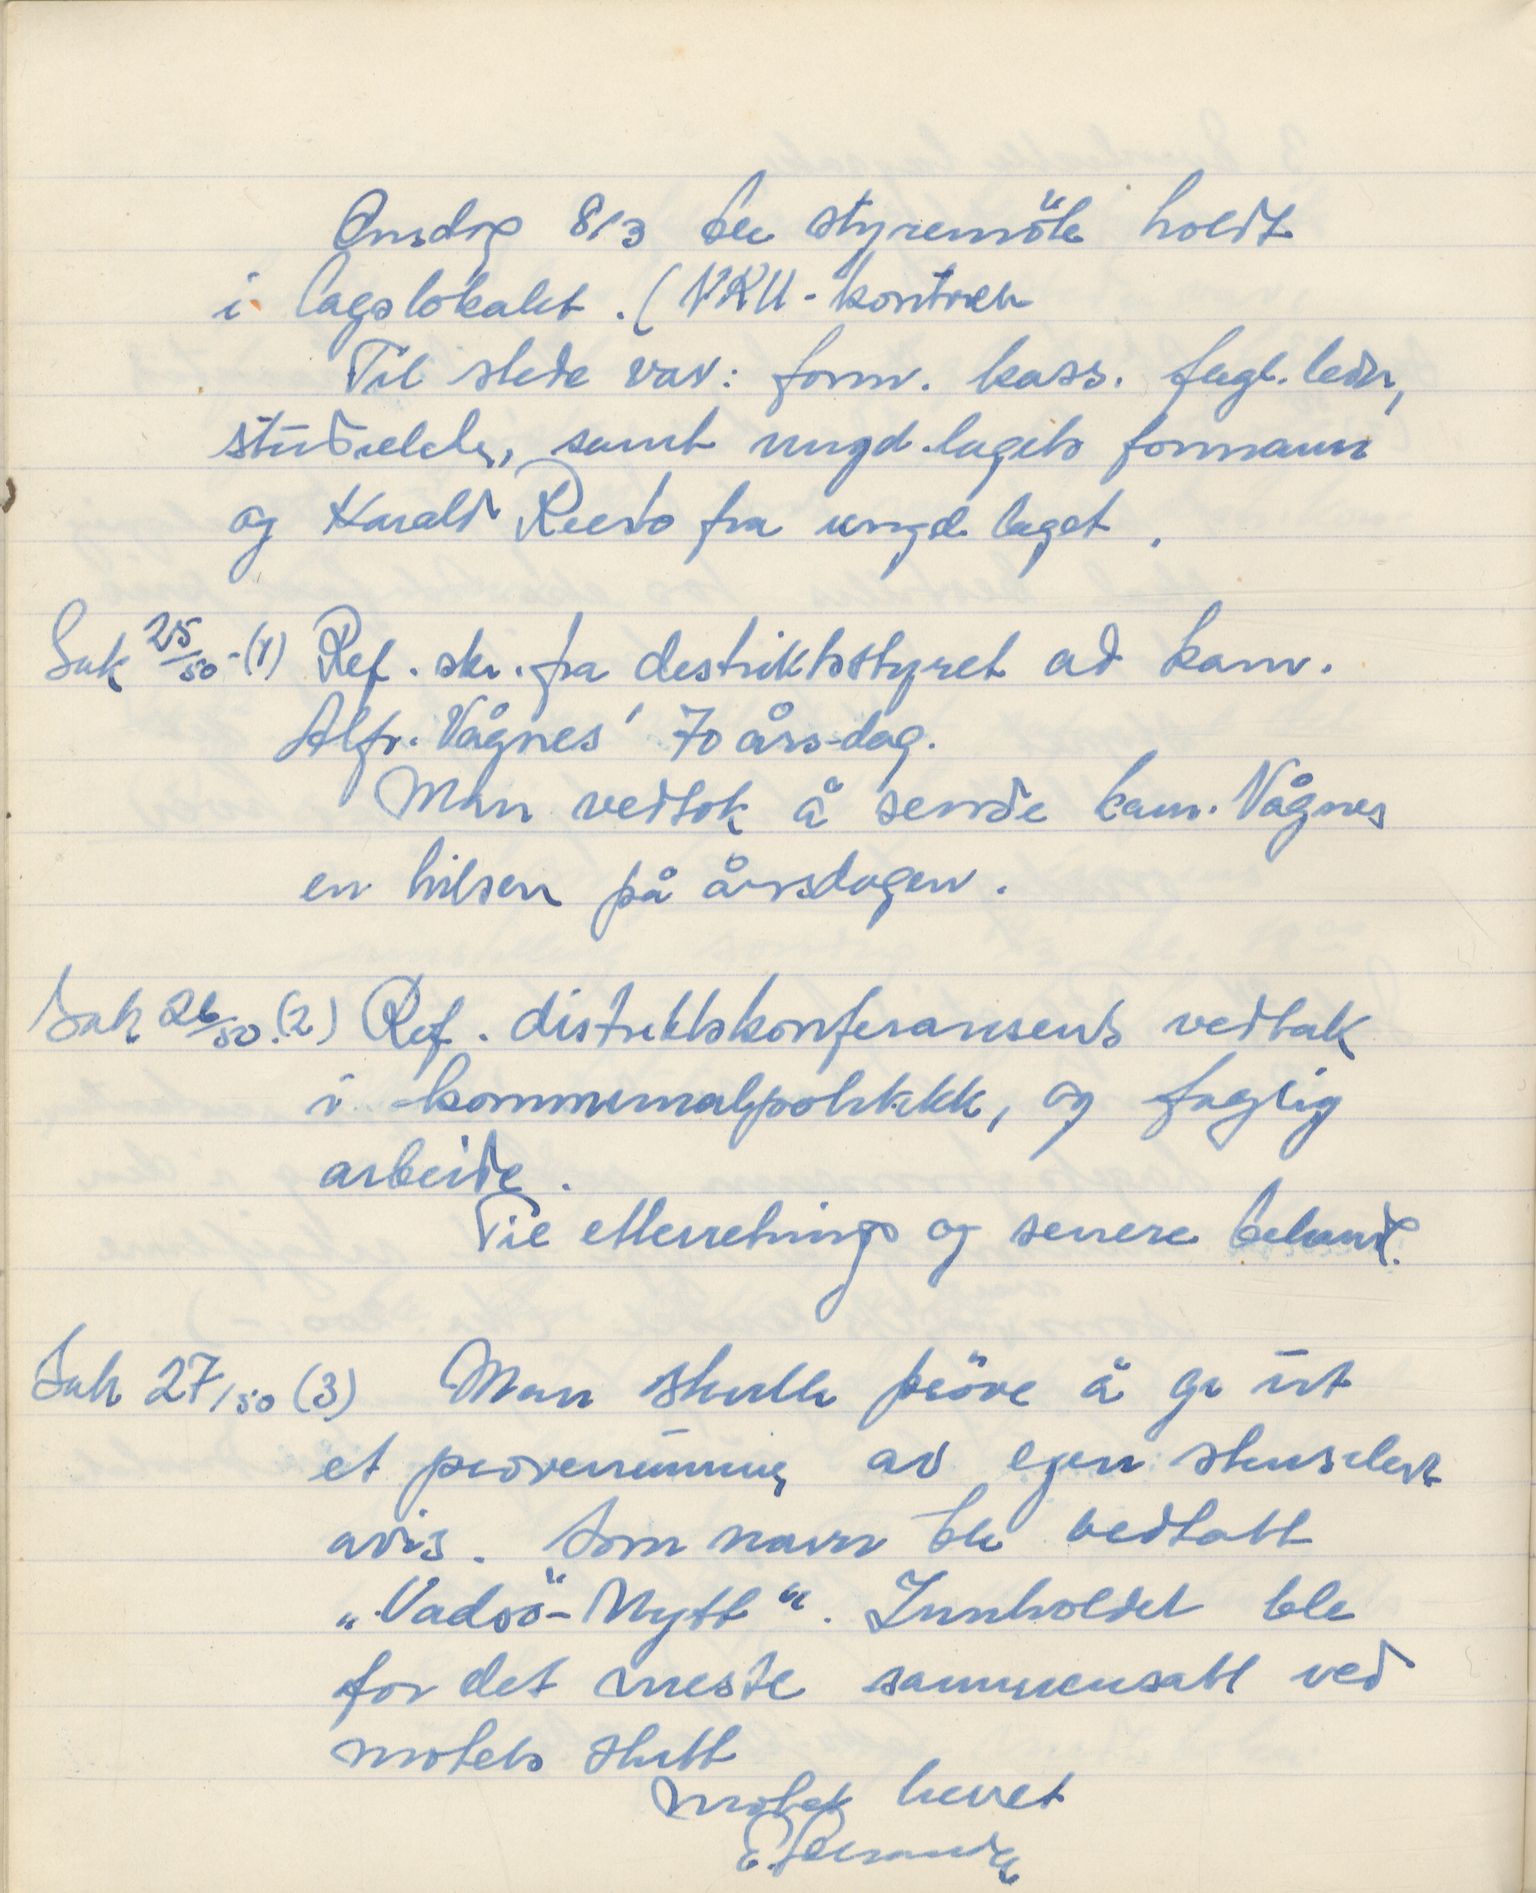 Onsdag 8/3 ble styremöte holdt
i lagslokalet. (NKU-kontoret
Til stede var: form. kass. fagl. leder,
studieleder, samt ungd.lagets formann
og Harald Reisto fra ungd.laget.
Sak 25/50 - (1) Ref. skr. fra destriktsstyret ad kam.
Alfr. Vågnes' 70 års-dag.
Man vedtok å sende kam. Vågnes
en hilsen på årsdagen.
Sak 26/50. (2) Ref. distriktskonferansens vedtak
i kommunalpolitikk, og faglig
arbeide.
Til etterretning og senere behandl.
Sak 27/50 (3) Man skulle pröve å gi ut
et prövenummer av egen stensilert
avis. Som navn ble vedtatt
„Vadsö-Nytt“. Innholdet ble
for det meste sammensatt ved
mötets slutt
Mötet hevet